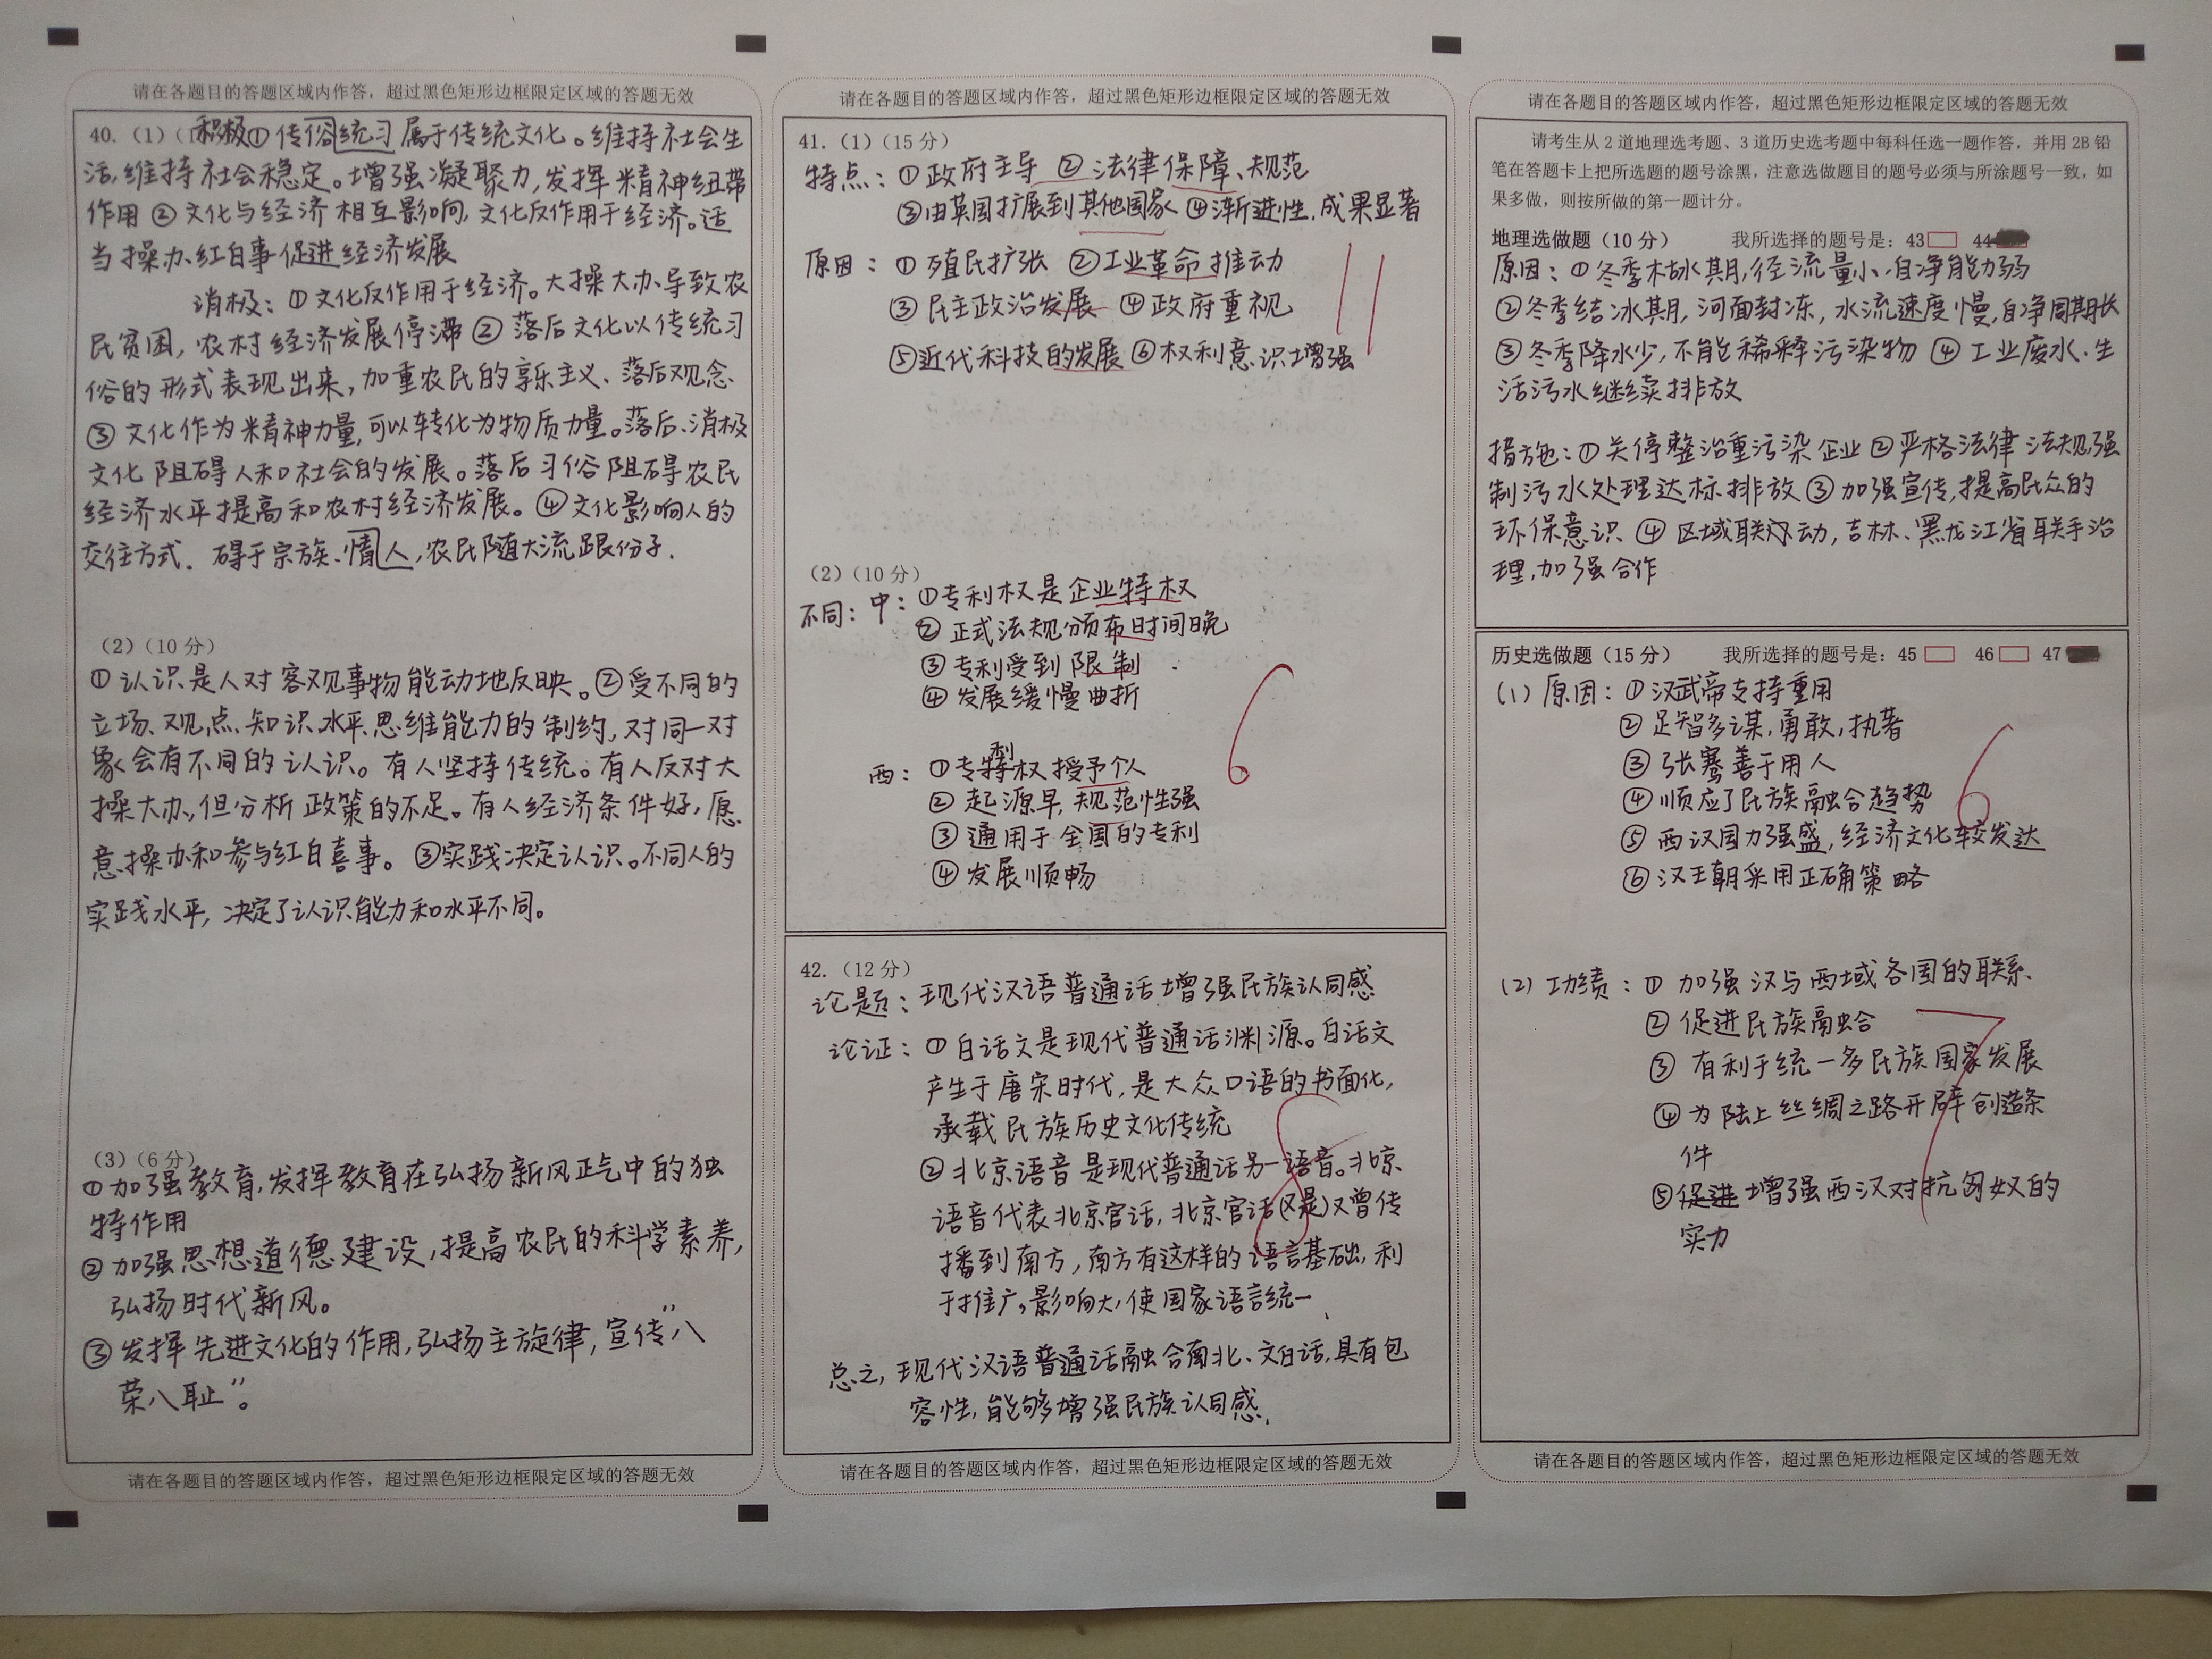 请在各题目的答题区域内作答，超过黑色矩形边框限定区域的答题无效
40.（1）（积极① 传俗统习属于传统文化。维持社会生
活，维持社会稳定。增强凝聚力，发挥精神纽带
作用 ② 文化与经济相互影响，文化反作用于经济。适
当操办红白事促进经济发展
消极：① 文化反作用于经济。大操大办导致农
民贫困，农村经济发展停滞 ② 落后文化以传统习
俗的形式表现出来，加重农民的享乐主义、落后观念、
③ 文化作为精神力量，可以转化为物质力量。落后、消极
文化阻碍人和社会的发展。落后习俗阻碍农民
经济水平提高和农村经济发展。④ 文化影响人的
交往方式．碍于宗族、情人，农民随大流跟份子．
（2）（10 分）
① 认识是人对客观事物能动地反映。② 受不同的
立场、观点、知识水平、思维能力的制约，对同一对
象会有不同的认识。有人坚持传统。有人反对大
操大办，但分析政策的不足。有人经济条件好，愿
意操办和参与红白喜事。③实践决定认识。不同人的
实践水平，决定了认识能力和水平不同。
（3）（6 分）
① 加强教育，发挥教育在弘扬新风正气中的独
特作用
② 加强思想道德建设，提高农民的科学素养，
弘扬时代新风。
③ 发挥先进文化的作用，弘扬主旋律，宣传“八
荣八耻”。
请在各题目的答题区域内作答，超过黑色矩形边框限定区域的答题无效
请在各题目的答题区域内作答，超过黑色矩形边框限定区域的答题无效
41.（1）（15 分）
特点：① 政府主导 ② 法律保障、规范
③由英国扩展到其他国家 ④渐进性，成果显著
原因：① 殖民扩张 ②工业革命推动
③ 民主政治发展 ④ 政府重视
⑤近代科技的发展 ⑥权利意识增强
11
（2）（10 分）
不同：中：①专利权是企业特权
② 正式法规颁布时间晚
③ 专利受到限制
④ 发展缓慢曲折
6
西：① 专利权授予个人
② 起源早，规范性强
③ 通用于全国的专利
④ 发展顺畅
42.（12 分）
论题：现代汉语普通话增强民族认同感
论证：① 白话文是现代普通话渊源。白话文
产生于唐宋时代，是大众口语的书面化，
承载民族历史文化传统
8
② 北京语音是现代普通话另一语音。北京
语音代表北京官话，北京官话(又是)又曾传
播到南方，南方有这样的语言基础，利
于推广，影响大，使国家语言统一
总之，现代汉语普通话融合南北、文白话，具有包
容性，能够增强民族认同感．
请在各题目的答题区域内作答，超过黑色矩形边框限定区域的答题无效
请在各题目的答题区域内作答，超过黑色矩形边框限定区域的答题无效
请考生从 2 道地理选考题、3 道历史选考题中每科任选一题作答，并用 2B 铅
笔在答题卡上把所选题的题号涂黑，注意选做题目的题号必须与所涂题号一致，如
果多做，则按所做的第一题计分。
地理选做题（10 分） 我所选择的题号是：43 44
原因：① 冬季枯水期，径流量小，自净能力弱
②冬季结冰期，河面封冻，水流速度慢，自净周期长
③ 冬季降水少，不能稀释污染物 ④ 工业废水．生
活污水继续排放
措施：① 关停整治重污染企业 ② 严格法律法规，强
制污水处理达标排放 ③ 加强宣传，提高民众的
环保意识 ④ 区域联动，吉林、黑龙江省联手治
理，加强合作
历史选做题（15 分） 我所选择的题号是：45 46 47
（1）原因：① 汉武帝支持重用
② 足智多谋，勇敢，执著
③ 张骞善于用人
④ 顺应了民族融合趋势
⑤ 西汉国力强盛，经济文化较发达
⑥ 汉王朝采用正确策略
6
（2）功绩：① 加强汉与西域各国的联系、
② 促进民族融合
③ 有利于统一多民族国家发展
④ 为陆上丝绸之路开辟创造条
件
⑤促进增强西汉对抗匈奴的
实力
7
请在各题目的答题区域内作答，超过黑色矩形边框限定区域的答题无效